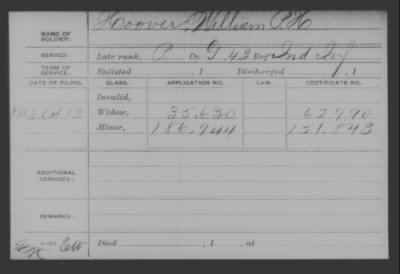 NAME OF SOLDIER: Hoover, William P. H
SERVICE: Late rank, P Co. G, 43 Reg't Ind Inf
TERM OF SERVICE: Enlisted , 1 Discharged , 1
DATE OF FILING. CLASS. APPLICATION NO. LAW. CERTIFICATE NO.
Invalid,
1863 Oct. 12 Widow, 35,630 62,790
Minor, 186,944 151,843
ADDITIONAL SERVICES:
REMARKS:
Died , 1 , at